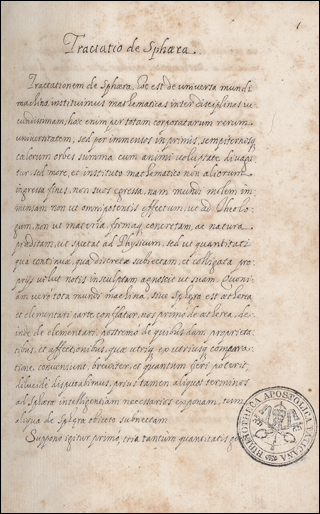 1
Tractatio de Sphæra.
Tractationem de Sphæra, hoc est de universa mundi
machina instituimus mathematicas inter disciplinas
cundissimam; hæc enim per totam corporatarum rerum
universitatem, sed per immensos in primis, sempiternosq
cælorum orbes summa cum animi voluptate divaga
tur, sed more, et instituto mathematico non aliorum
ingressa fines, non suos egressa, nam mundi molem im
mensam non ut omnipotentis effectum, ut ad Theolo
gum, non ut materia, formaq concretam, ac natura
præditam, ut spectat ad Physicum, sed ut quantitati
quæ continuæ, quæ discretæ subiectam, et colligata pro
priis velut notis insculptam agnoscit ut suam. Quoni
am vero tota mundi machina, sive Sphæra est æthera
et elementari parte conflatur, nos primo de ætherea, de
inde de elementari, postremo de quibusdam proprieta
tibus, et affectionibus, quæ utriq ex variisq compara
tione, conveniunt, breviter, et quantum fieri poterit
dilucide disputabimus, prius tamen aliquot terminos
ad Sphæræ intelligentiam necessarios exponam, tum
aliqua de Sphæræ obiecto subnectam.
Suppono igitur primo, tria tantum quantitatis ge
BIBLIOTHECA APOSTOLICA VATICANA